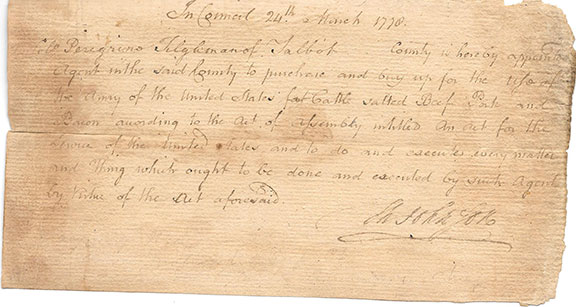 In Council 24th March 1778.
Peregrine Tilghman of Talbot County is hereby appointed
Agent in the said County to purchase and buy up for the Use of
the Army of the United States fat Cattle salted Beef Pork and
Bacon according to the Act of Assembly intitled An Act for the
Service of the United States and to do and execute every matter
and thing which ought to be done and executed by such Agent
by Virtue of the Act aforesaid.
Th Johnson